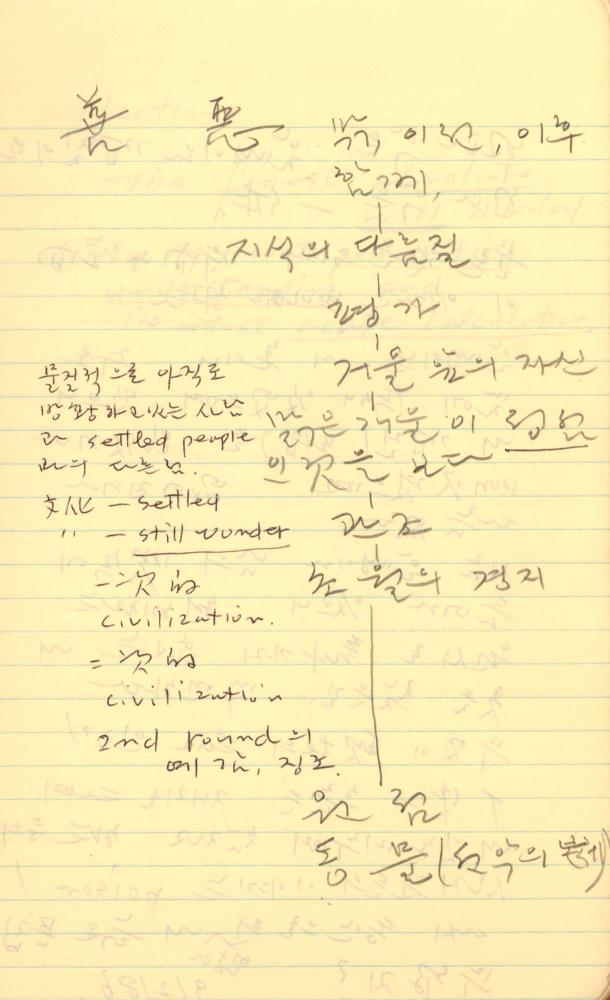 善 惡 이전, 이후
함께,
지식의 다듬질
평가
거울 앞의 자신
맑은 거울이
의 것을 보다
관조
초월의 경지
원림
동물(선악의
물질적으로 아직도
방황하고있는 사람
과 settled people
과의 다른점.
文化 — settled
〃 — still wonder
一次的
civilization.
二次的
civilization
2nd round의
예감, 징조.